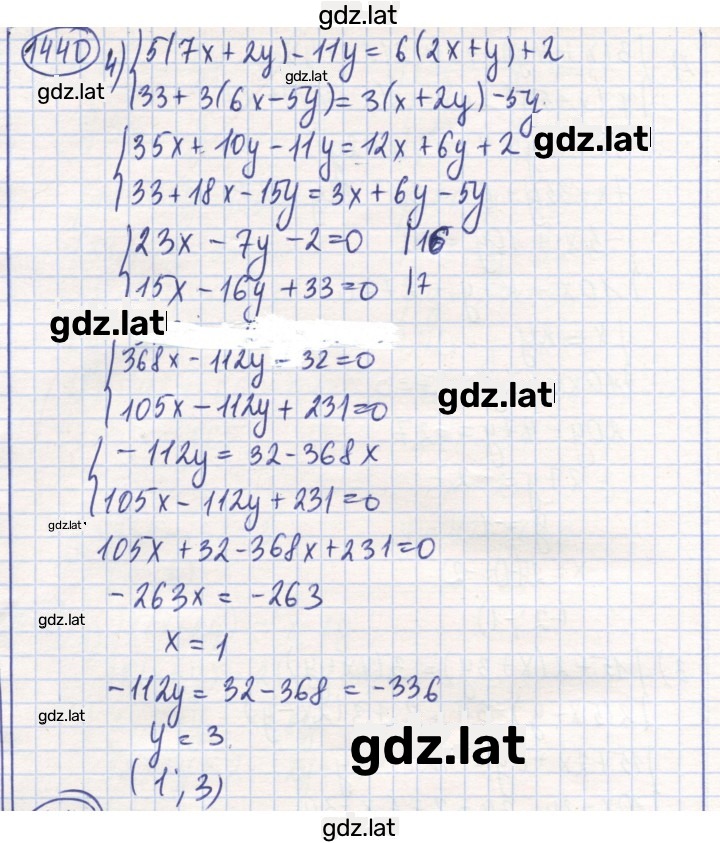 gdz.lat
1440 4) { 5(7x + 2y) - 11y = 6(2x + y) + 2
gdz.lat
gdz.lat
33 + 3(6x - 5y) = 3(x + 2y) - 5y
gdz.lat
{ 35x + 10y - 11y = 12x + 6y + 2
33 + 18x - 15y = 3x + 6y - 5y
{ 23x - 7y - 2 = 0 | 16
15x - 16y + 33 = 0 | 7
gdz.lat
{ 368x - 112y - 32 = 0
gdz.lat
105x - 112y + 231 = 0
{ - 112y = 32 - 368x
105x - 112y + 231 = 0
gdz.lat
105x + 32 - 368x + 231 = 0
- 263x = - 263
gdz.lat
x = 1
- 112y = 32 - 368 = - 336
gdz.lat
y = 3
gdz.lat
(1; 3)
gdz.lat